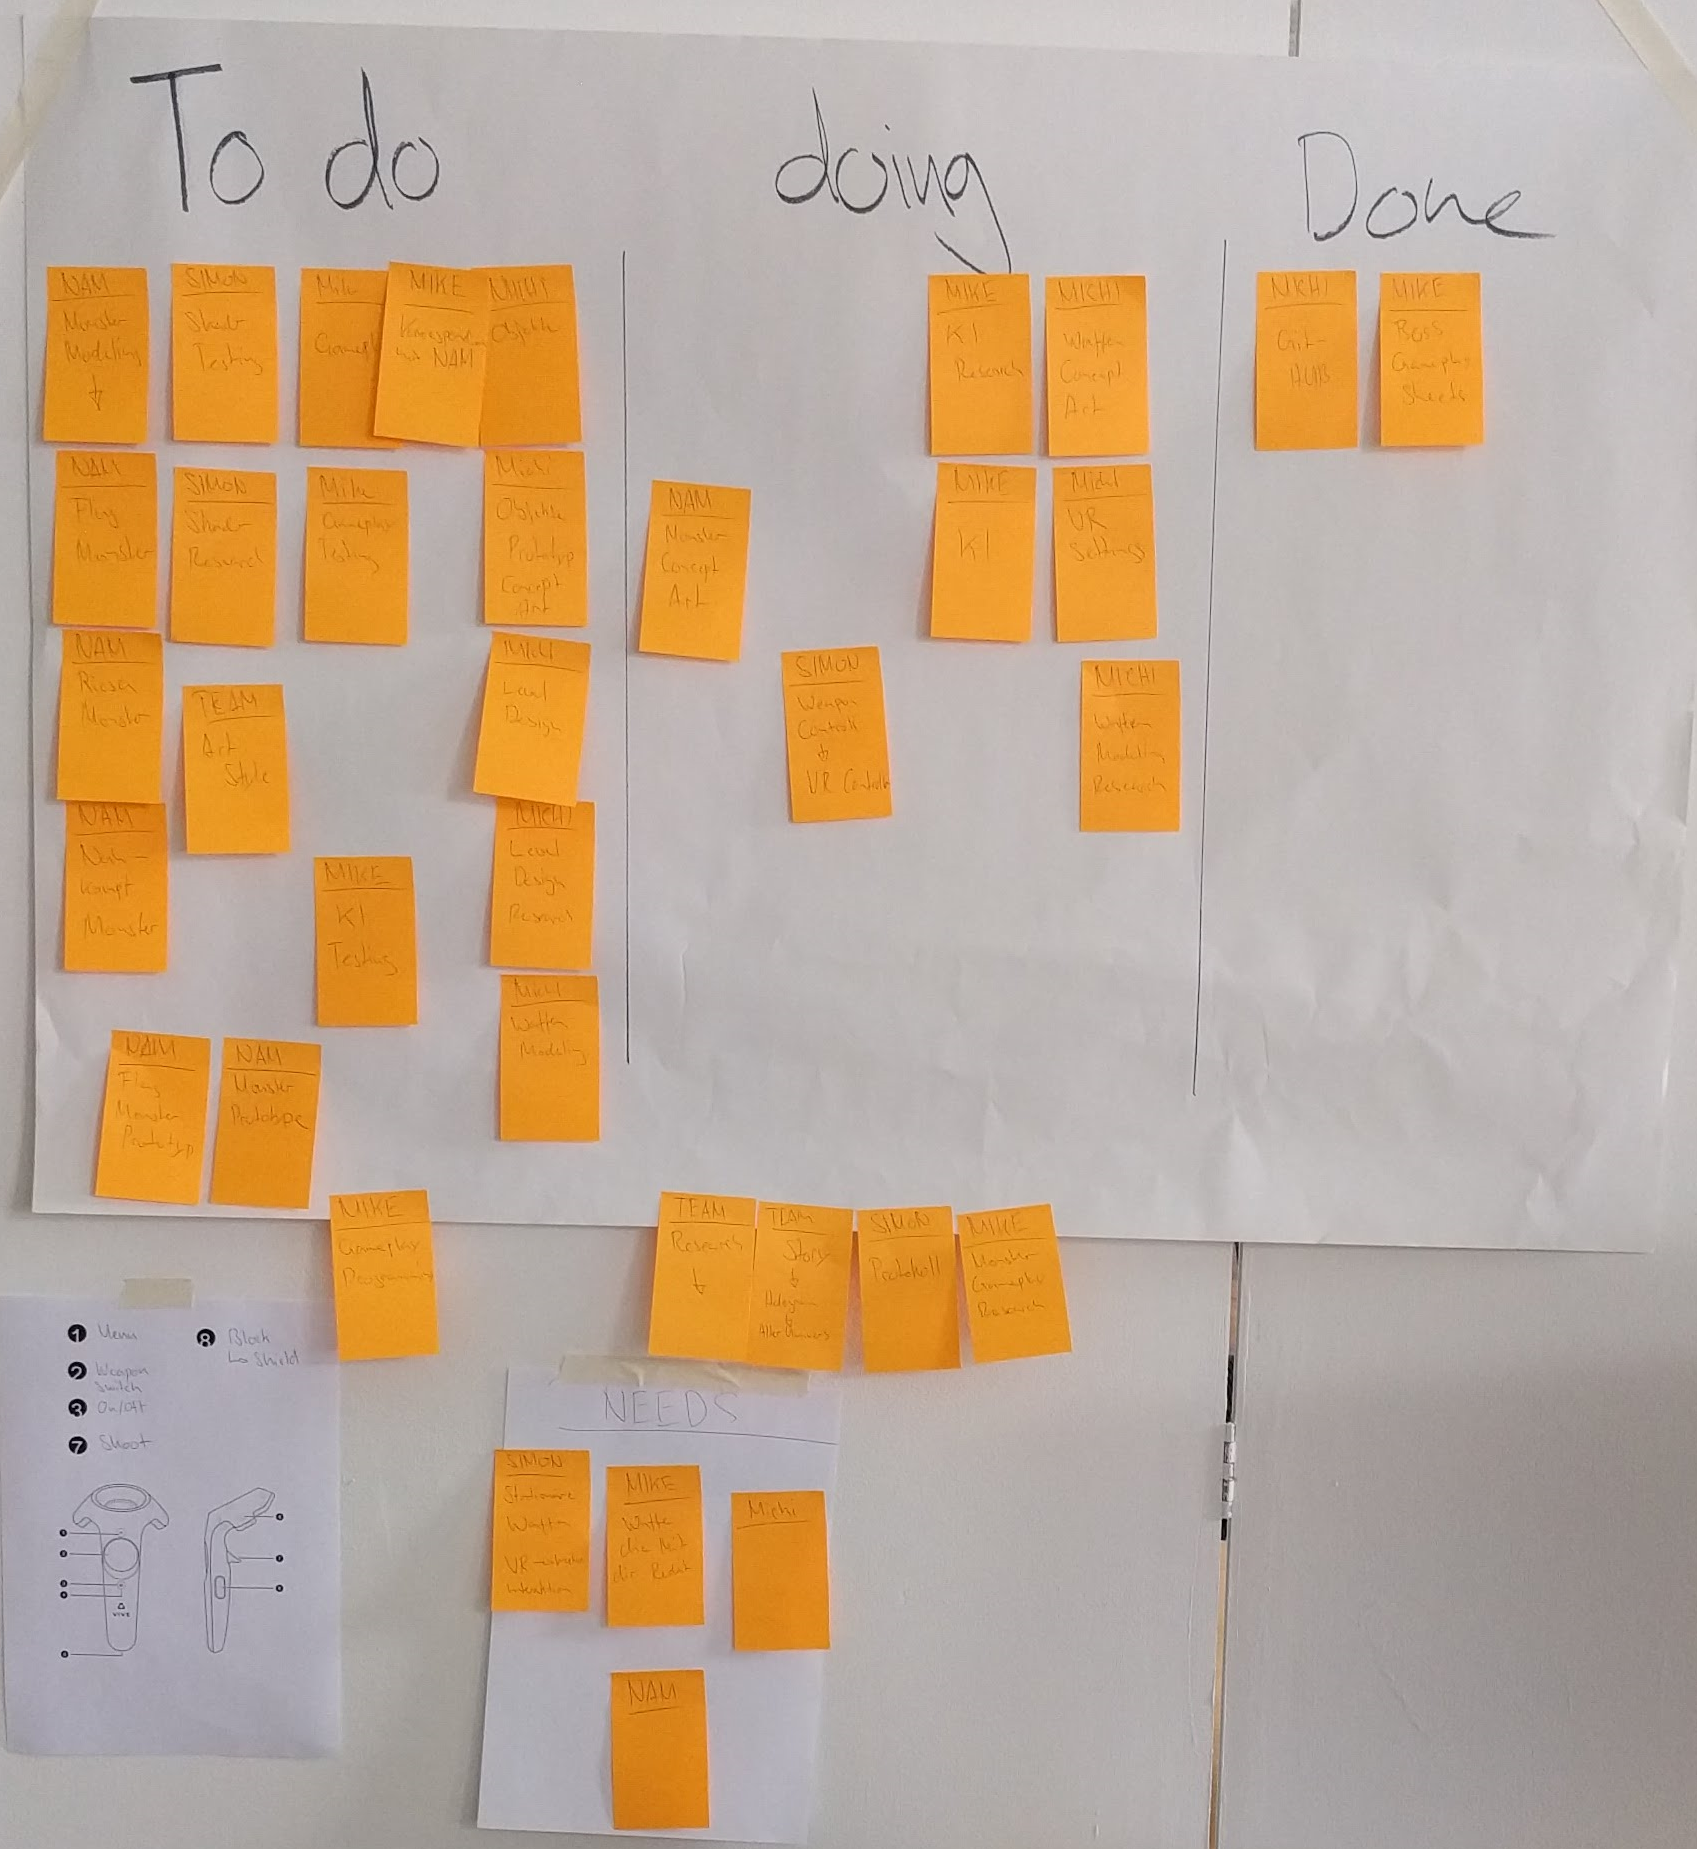 To do
doing
Done
NAM
Monster
Modeling
SIMON
Shader
Testing
Mike
MIKE
NAM
MICHI
Objekte
NAM
Flug
Monster
SIMON
Shader
Research
Mike
Gameplay
Testing
Michi
Objekte
Prototyp
Concept
Art
NAM
Riesen
Monster
TEAM
Art
Style
Michi
Level
Design
NAM
Nah-
kampf
Monster
MIKE
KI
Testing
MICHI
Level
Design
Research
MICHI
Waffen
Modeling
NAM
Flug
Monster
Prototyp
NAM
Monster
Prototype
MIKE
Gameplay
Programming
MIKE
KI
Research
MICHI
Waffen
Concept
Art
NAM
Monster
Concept
Art
MIKE
KI
Michi
VR
Settings
SIMON
Weapon
Controll
VR Controller
MICHI
Waffen
Modeling
Research
MICHI
Git-
HUB
MIKE
Boss
Gameplay
Sheets
TEAM
Research
TEAM
Story
SIMON
Protokoll
MIKE
Monster
Gameplay
Research
1 Menu
2 Weapon
Switch
3 On/Off
7 Shoot
8 Block
Shield
VIVE
NEEDS
SIMON
Stationäre
Waffen
MIKE
Waffe
die Mit
dir Redet
Michi
NAM